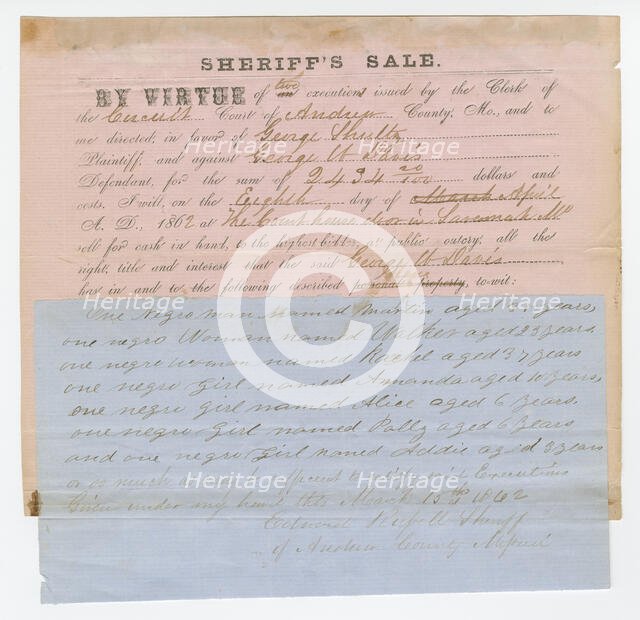 SHERIFF'S SALE.
BY VIRTUE of two an executions issued by the Clerk of
the Circuit Court of Andrew County, Mo., and to
me directed, in favor of George Shultz
Plaintiff, and against George W Davis
Defendant, for the sum of 2434 20/100 dollars and
costs. I will, on the Eighth day of March April
A. D., 1862 at The Court house door in Savannah Mo
sell for cash in hand, to the highest bidder, at public outcry, all the
right, title and interest that the said George W Davis
has in and to the following described personal property, to-wit:
One Negro man Named aged years,
one negro Woman named Walker aged 23 years,
one negro woman named Rachel aged 37 years
one negro Girl named Amanda aged 10 years,
one negro girl named Alice aged 6 years,
one negro Girl named Polly aged 6 years
and one negro Girl named Addie aged 3 years
or as much Executions
Given under my hand this March 15th 1862
Edward Sheriff
of Andrew County Missouri
Heritage Heritage Heritage
Heritage Heritage Heritage
Heritage Heritage Heritage
Heritage Heritage Heritage